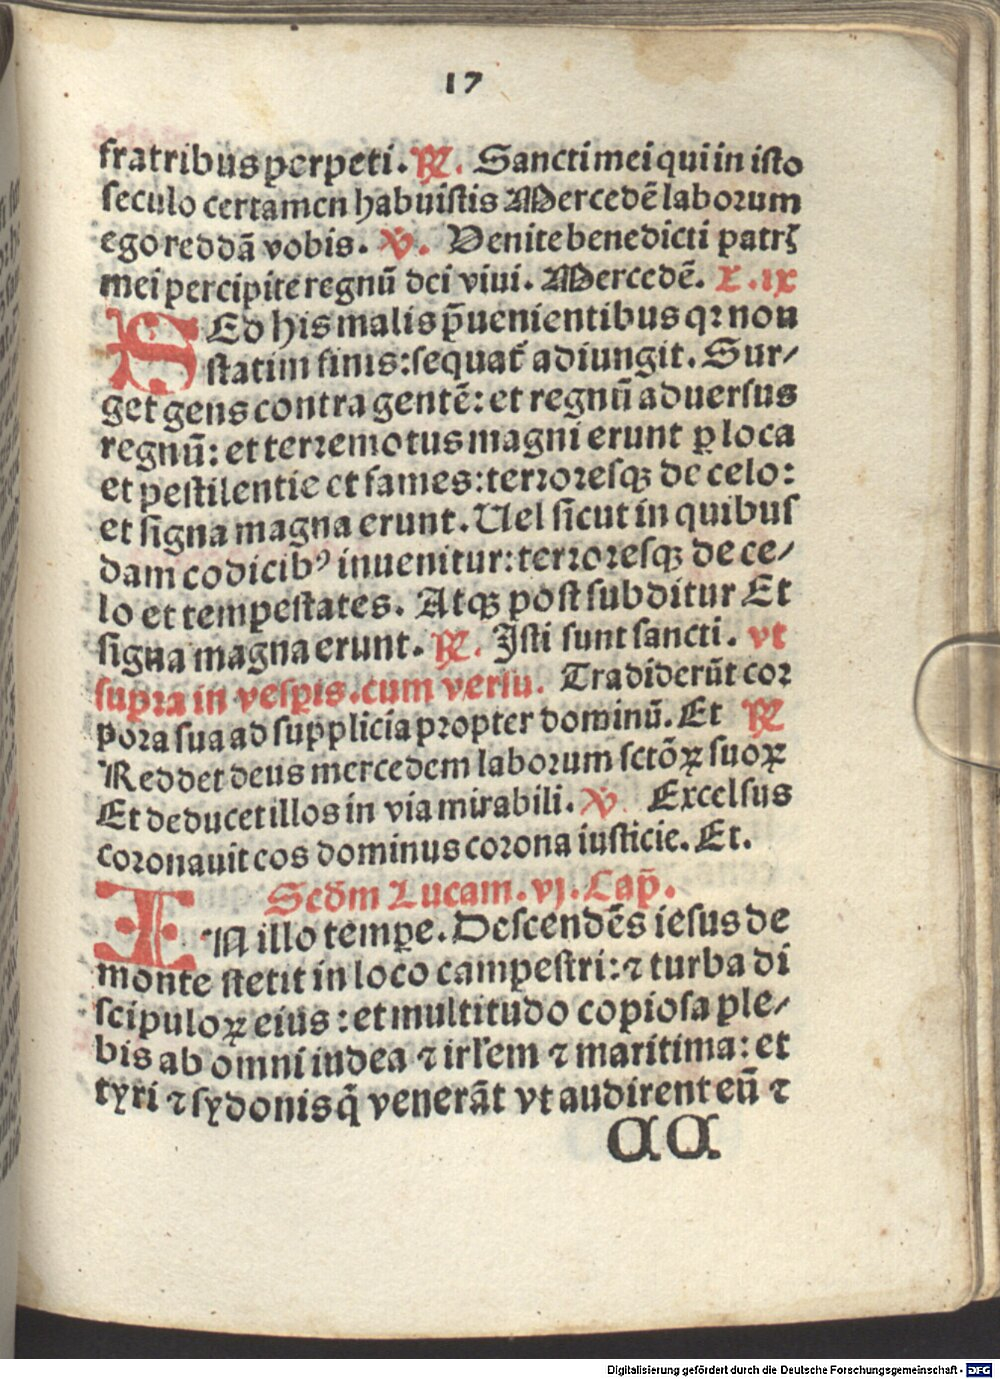 17
fratribus perpeti. ℟. Sancti mei qui in isto
seculo certamen habuistis Mercedē laborum
ego reddā vobis. ℣. Venite benedicti patrꝫ
mei percipite regnū dei viui. Mercedē. L. ix
SEd his malis p̄uenientibus qꝛ non
statim finis: sequat᷑ adiungit. Sur/
get gens contra gentē: et regnū aduersus
regnū: et terremotus magni erunt ꝑ loca
et pestilentie et fames: terroresqꝫ de celo:
et signa magna erunt. Uel sicut in quibus
dam codicibꝰ inuenitur: terroresqꝫ de ce/
lo et tempestates. Atqꝫ post subditur Et
signa magna erunt. ℟. Isti sunt sancti. vt
supra in vesꝑis. cum versu. Tradiderūt cor
pora sua ad supplicia propter dominū. Et ℟
Reddet deus mercedem laborum sctōꝝ suoꝝ
Et deducet illos in via mirabili. ℣ Excelsus
coronauit eos dominus corona iusticie. Et.
Scd̄m Lucam. vj. Cap̄.
IN illo temꝑe. Descendēs iesus de
monte stetit in loco campestri: ⁊ turba di
scipuloꝝ eius: et multitudo copiosa ple/
bis ab omni iudea ⁊ irl̕em ⁊ maritima: et
tyri ⁊ sydonis q̄ venerāt vt audirent eū ⁊
AA
Digitalisierung gefördert durch die Deutsche Forschungsgemeinschaft - DFG